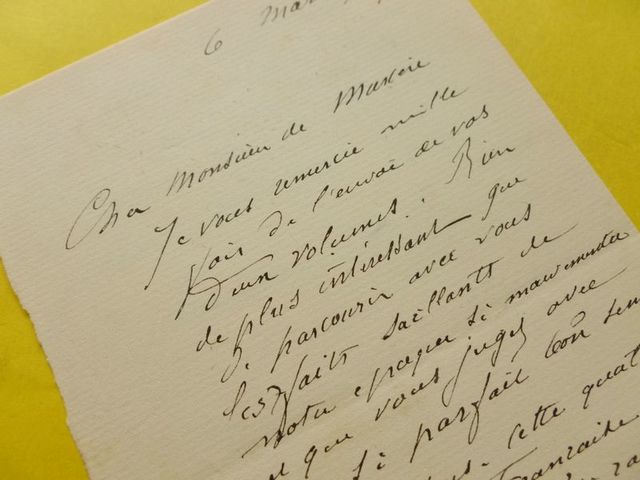 6 Mars
Cher Monsieur de
Je vous remercie mille
fois de l'envoi de vos
deux volumes. Rien
de plus intéressant que
de parcourir avec vous
les faits saillants de
notre époque si mouvementée
et que vous jugez avec
si parfait bon sens
cette quat
française